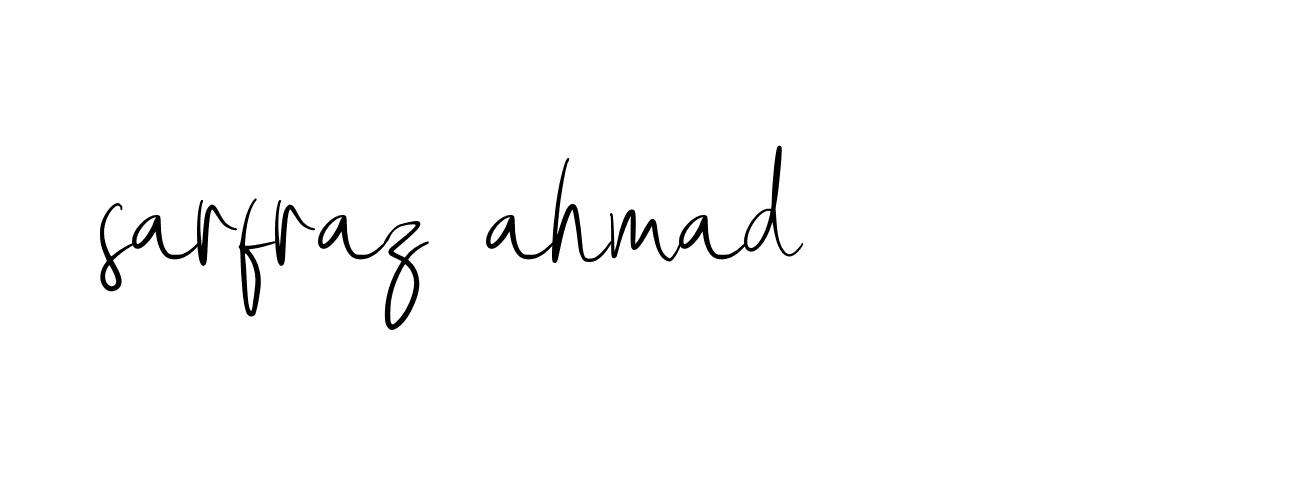 sarfraz ahmad